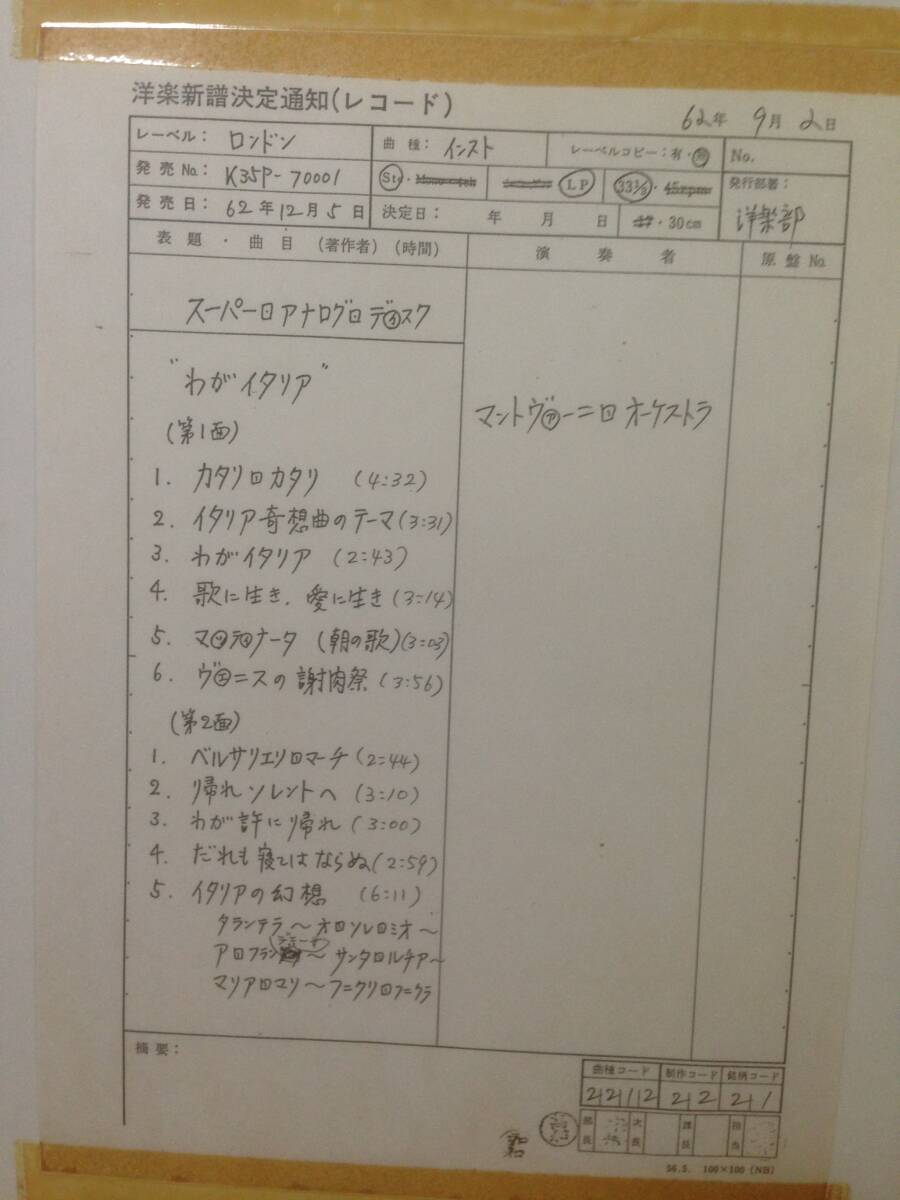 洋楽新譜決定通知(レコード)
62年 9月 2日
レーベル: ロンドン 曲種: インスト レーベルコピー:有・無 No.
発売No: K35P-70001 St・ LP 33⅓・45rpm 発行部署:
発売日: 62年12月5日 決定日: 年 月 日 ・30cm 洋楽部
表題・曲目 (著作者)(時間) 演奏者 原盤No.
スーパー口アナログ口ディスク
"わがイタリア"
マントヴァーニ口オーケストラ
(第1面)
1. カタリ口カタリ (4:32)
2. イタリア奇想曲のテーマ(3:31)
3. わがイタリア (2:43)
4. 歌に生き、愛に生き(3:14)
5. マッティナータ (朝の歌)(3:03)
6. ヴェニスの謝肉祭(3:56)
(第2面)
1. ベルサリエリ口マーチ(2:44)
2. 帰れソレントへ (3:10)
3. わが許に帰れ (3:00)
4. だれも寝てはならぬ(2:59)
5. イタリアの幻想 (6:11)
タランテラ〜オ口ソレ口ミオ〜
ア口フラン〜サンタ口ルチア〜
マリア口マリ〜フニクリ口フニクラ
摘要:
曲種コード 制作コード 銘柄コード
22112 22 21
部長 次長 課長 担当
56.5. 100×100(NB)